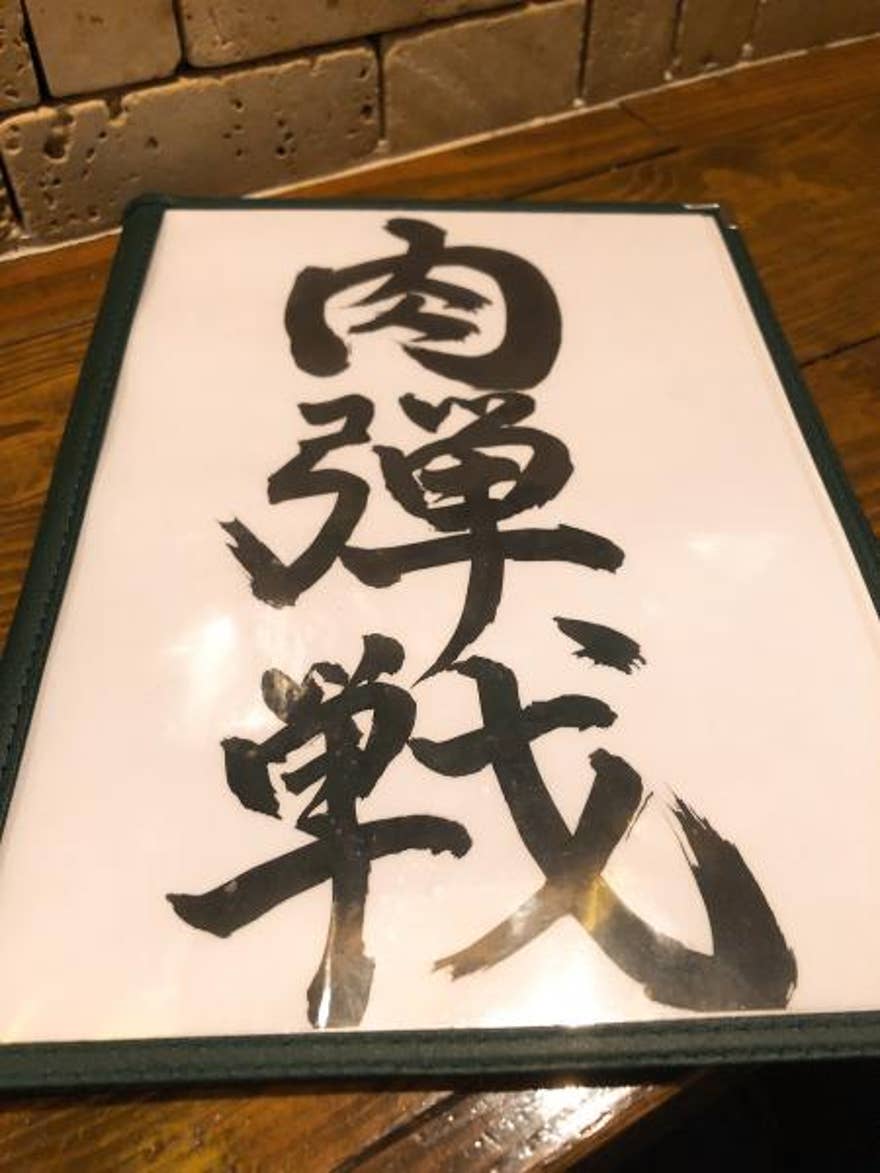 肉弾戦